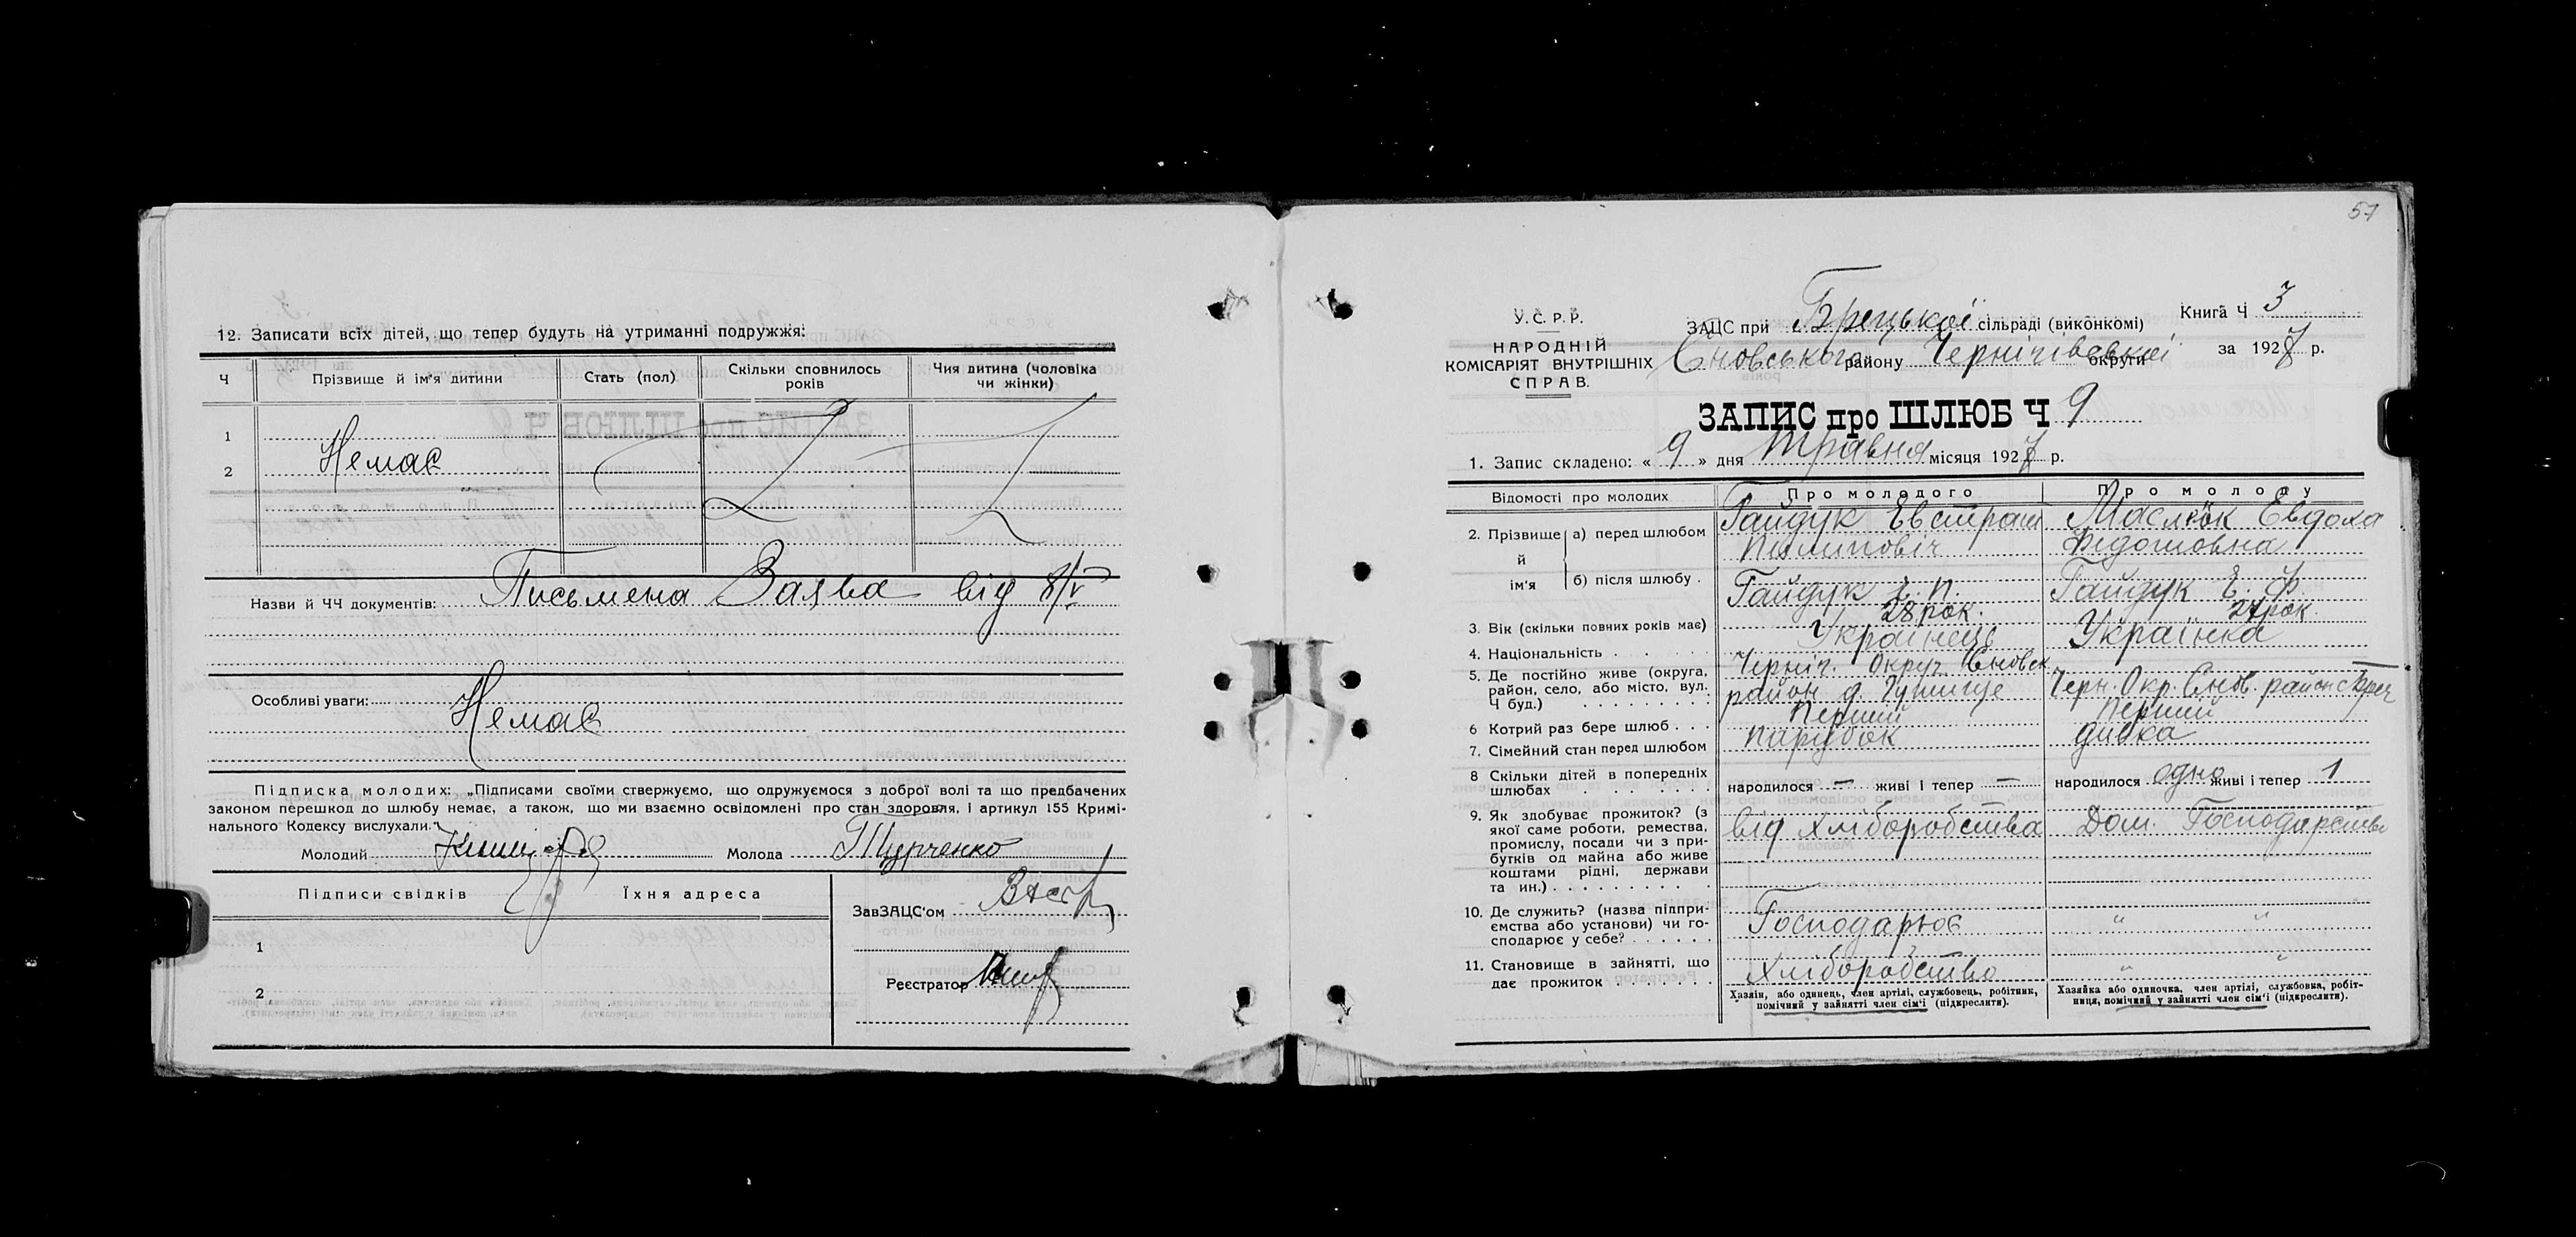 12. Записати всіх дітей, що тепер будуть на утриманні подружжя:
Ч Прізвище й ім'я дитини Стать (пол) Скільки сповнилось років Чия дитина (чоловіка чи жінки)
1
2 Немає
Назви й ЧЧ документів: Письмена Заява від 8/V
Особливі уваги: Немає
Підписка молодих: „Підписами своїми ствержуємо, що одружуємося з доброї волі та що предбачених
законом перешкод до шлюбу немає, а також, що ми взаємно освідомлені про стан здоровля, і артикул 155 Кримі-
нального Кодексу вислухали."
Молодий Молода Турченко
Підписи свідків Їхня адреса
ЗавЗАЦС'ом
1
Реєстратор
2
57
У.С.Р.Р.
НАРОДНІЙ
КОМІСАРІЯТ ВНУТРІШНІХ
СПРАВ.
ЗАЦС при Грецької сільраді (виконкомі)
Книга Ч 3
Сновського району Чернігівської округи
за 1927 р.
ЗАПИС про ШЛЮБ Ч 9
1. Запис складено: « 9 » дня Травня місяця 1927 р.
Відомості про молодих Про молодого Про молоду
2. Прізвище й ім'я
а) перед шлюбом Гайдук Евстрат Пилиповіч Маслюк Евдоха Федотовна
б) після шлюбу . Гайдук Е. П. Гайдук Е. Ф.
3. Вік (скільки повних років має) 28 рок. рок.
4. Національність . . . . Українець Українка
5. Де постійно живе (округа, район, село, або місто, вул. Ч буд.) . . . . . . . . . Черніг. Округ Сновск район д. Гутище Черн. Окр. Снов. район
6 Котрий раз бере шлюб . . . Перший Перший
7. Сімейний стан перед шлюбом Парубок дивка
8 Скільки дітей в попередніх шлюбах . . . . . . . . народилося — живі і тепер — народилося одно живі і тепер 1
9. Як здобуває прожиток? (з якої саме роботи, ремества, промислу, посади чи з прибутків од майна або живе коштами рідні, держави та ин.) . . . . . . . . . . від Хліборобства Дом. Господарство
10. Де служить? (назва підпри-ємства або установи) чи го-сподарює у себе? . . . . . . Господарює " "
11. Становище в зайнятті, що дає прожиток . . . . . . . Хліборобство " "
Хазяїн, або одинець, член артілі, службовець, робітник, помічний у зайнятті член сім'ї (підкреслити).
Хазяйка або одиночка, член артілі, службовка, робіт-ниця, помічний у зайнятті член сім'ї (підкреслити).